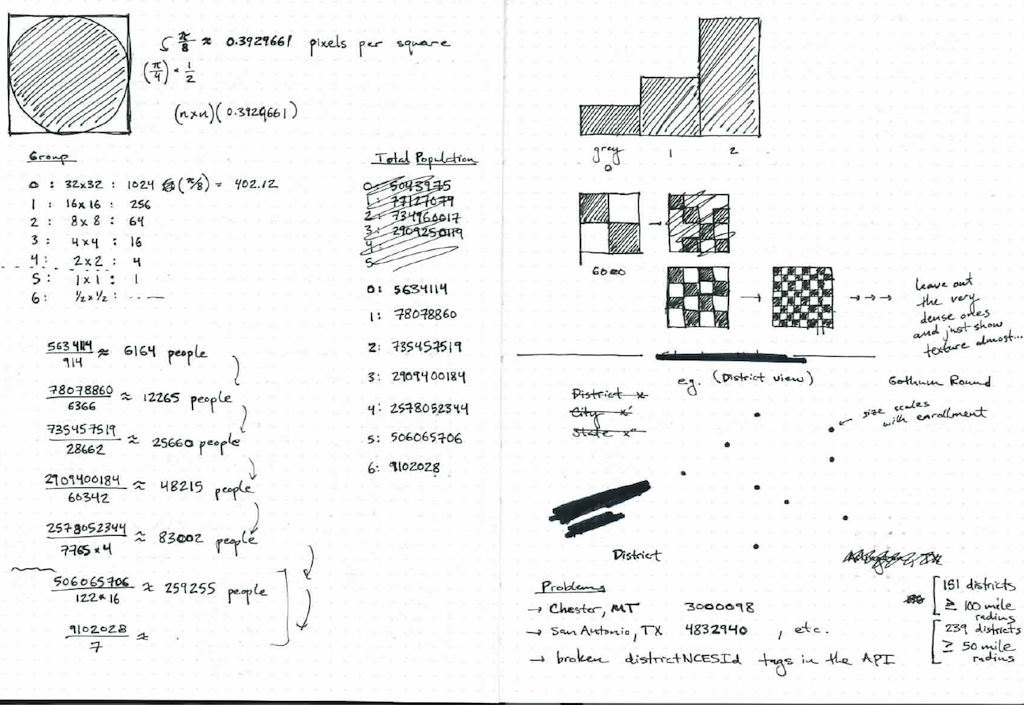 π/8 ≈ 0.3929661 pixels per square
(π/4) · 1/2
(n×n)(0.3929661)
Group
0 : 32×32 : 1024 (π/8) = 402.12
1 : 16×16 : 256
2 : 8×8 : 64
3 : 4×4 : 16
4 : 2×2 : 4
5 : 1×1 : 1
6 : ½×½ :
5634114/914 ≈ 6164 people
78078860/6366 ≈ 12265 people
735457519/28662 ≈ 25660 people
2909400184/60342 ≈ 48215 people
2578052344/7765×4 ≈ 83002 people
506065706/122×16 ≈ 259255 people
9102028/7 ≈
Total Population
0: 5043975
1: 77127079
2: 734960017
3: 2909250119
4:
5
0: 5634114
1: 78078860
2: 735457519
3: 2909400184
4: 2578052344
5: 506065706
6: 9102028
grey 1 2
0
6000
leave out
the very
dense ones
and just show
texture almost...
e.g. (District view)
Gotham Round
District x
City x'
State x"
size scales
with enrollment
District
Problems
→ Chester, MT 3000098
→ San Antonio, TX 4832940 , etc.
→ broken districtNCESId tags in the API
181 districts
≥ 100 mile
radius
239 districts
≥ 50 mile
radius